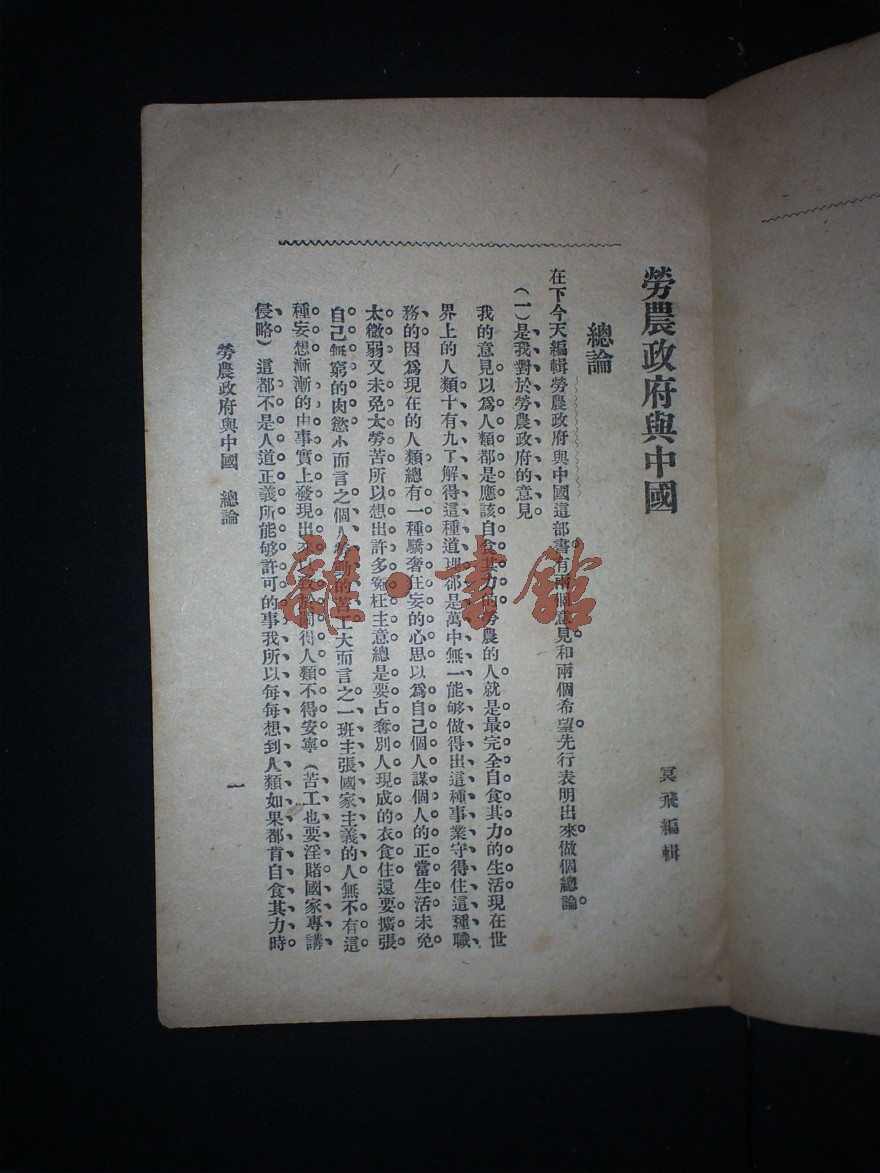 勞農政府與中國
冥飛編輯
總論
在下今天編輯勞農政府與中國這部書有兩個意見和兩個希望先行表明出來做個總論
(一)是我對於勞農政府的意見
我的意見以爲人類都是應該自食其力的勞農的人就是最完全自食其力的生活現在世
界上的人類十有九了解得這種道理卻是萬中無一能够做得出這種事業守得住這種職
務的因爲現在的人類總有一種驕奢狂妄的心思以爲自己個人謀個人的正當生活未免
太微弱又未免太勞苦所以想出許多冤枉主意總是要占奪別人現成的衣食住還要擴張
自己無窮的肉慾小而言之個人勞動的苦工大而言之一班主張國家主義的人無不有這
種妄想漸漸的由事實上發現出來以致於鬧得人類不得安寧(苦工也要淫賭國家專講
侵略)這都不是人道正義所能够許可的事我所以每每想到人類如果都肯自食其力時
勞農政府與中國 總論
一
雜·書館